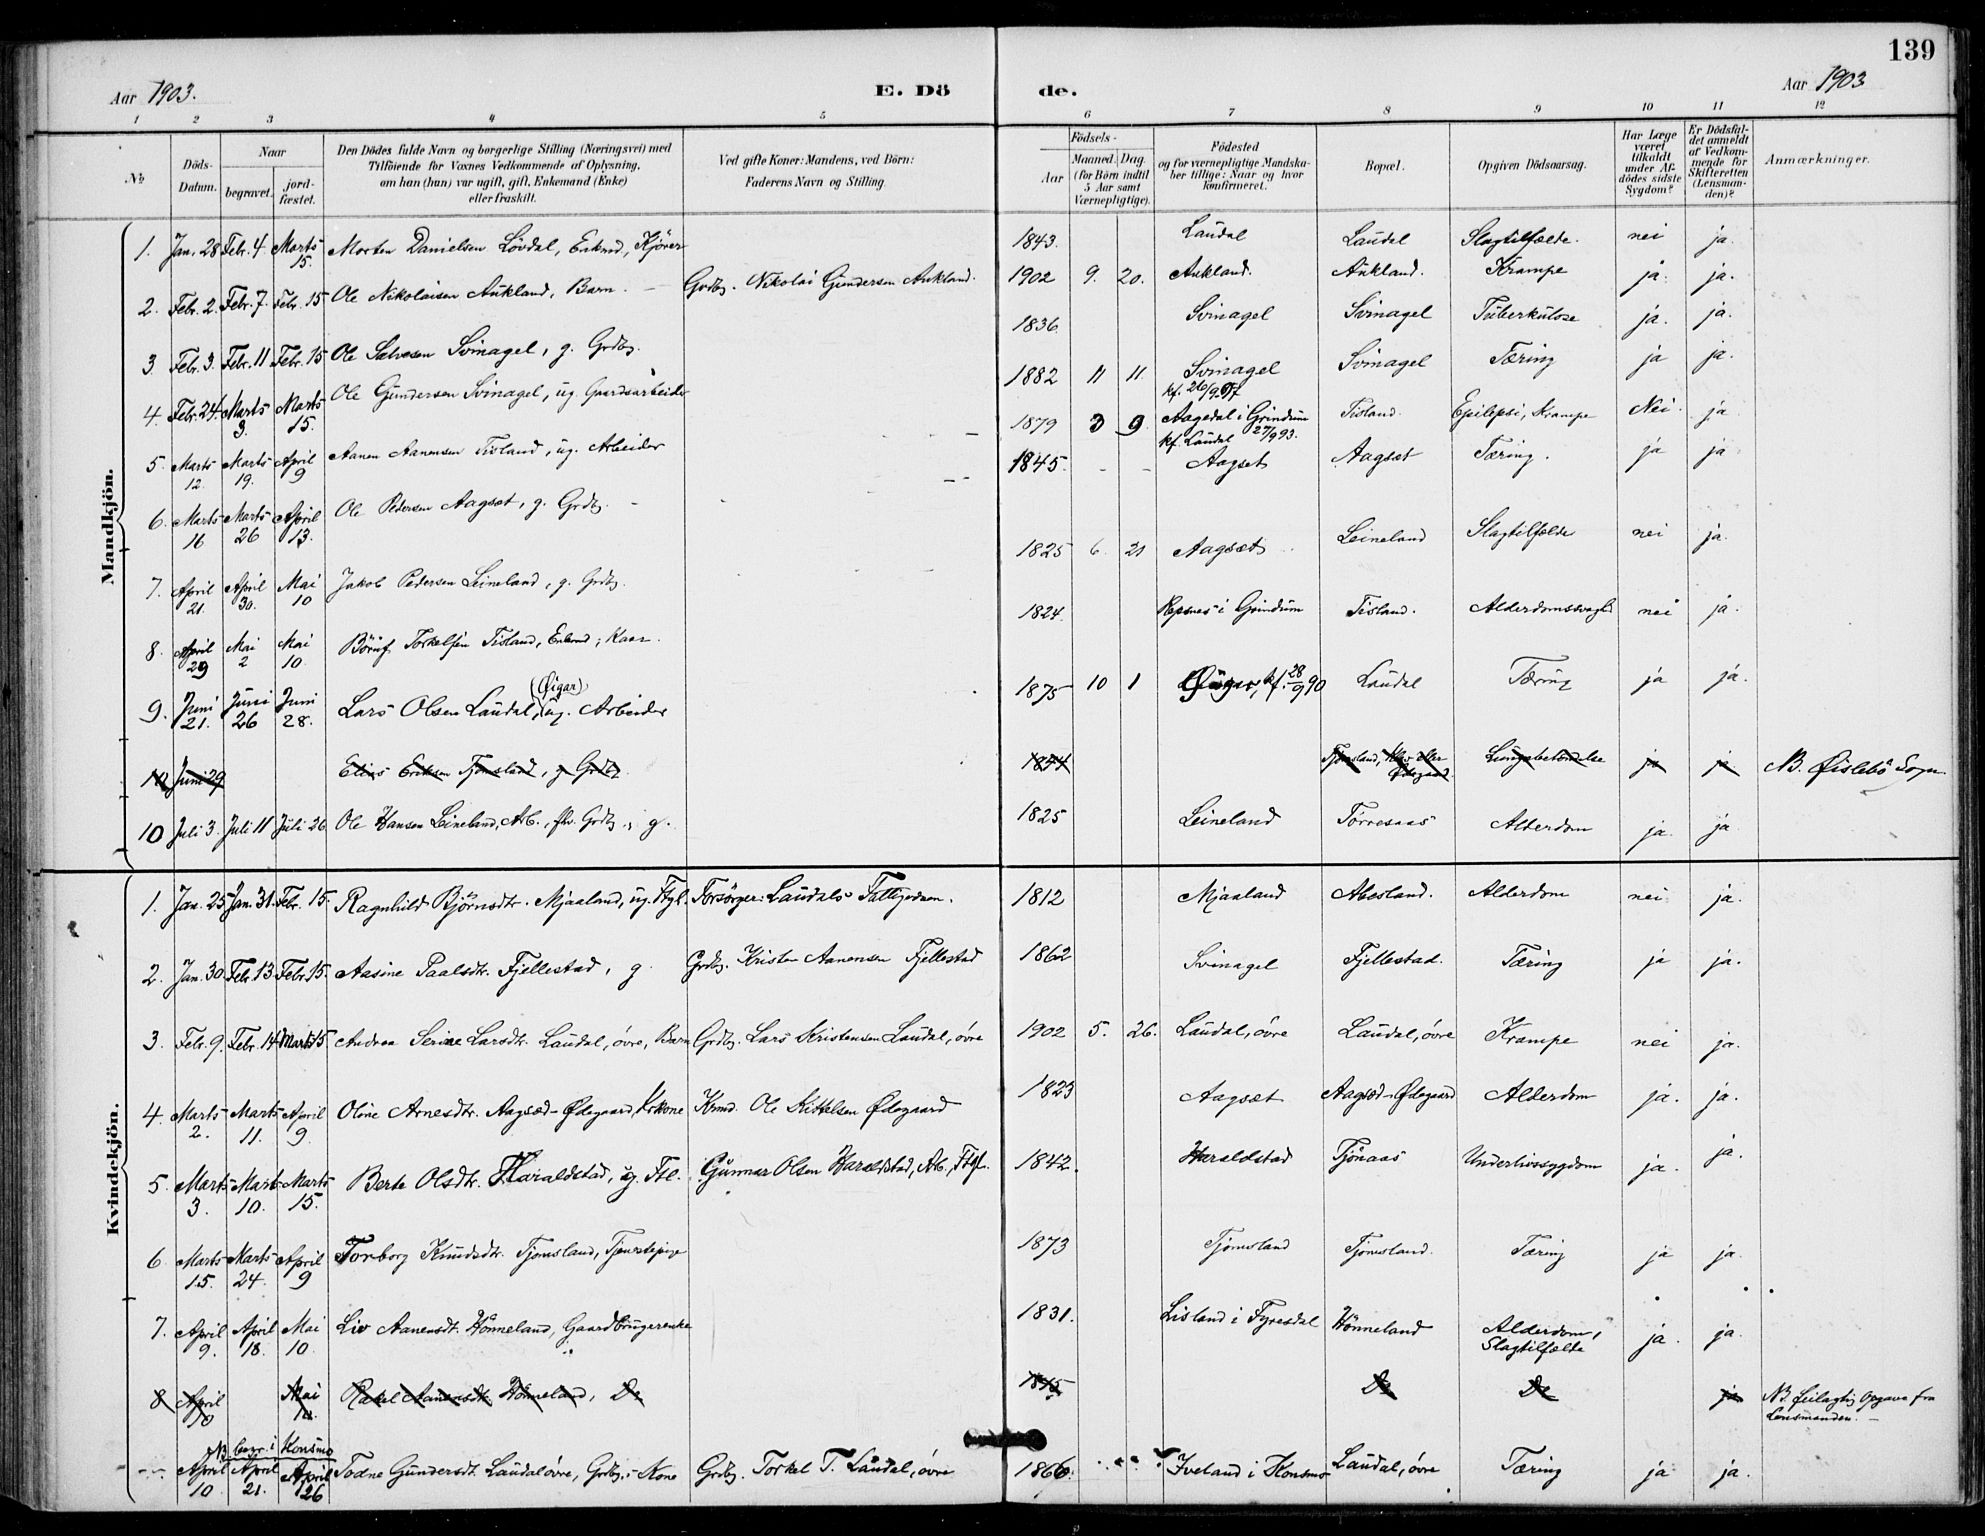 139
Aar 1903. E. Dö de. Aar 1903
1 2 3 4 5 6 7 8 9 10 11 12
№
Döds-Datum.
Naar
begravet.
jord-fæstet.
Den Dödes fulde Navn og borgerlige Stilling (Næringsvei) med
Tilföiende for Voxnes Vedkommende af Oplysning,
om han (hun) var ugift, gift, Enkemand (Enke)
eller fraskilt.
Ved gifte Koner: Mandens, ved Börn:
Faderens Navn og Stilling.
Födsels-
Aar
Maaned. Dag.
(for Börn indtil
5 Aar samt
Værnepligtige).
Födested
og for værnepligtige Mandska-
ber tillige: Naar og hvor
konfirmeret.
Bopæl.
Opgiven Dödsaarsag.
Har Læge
været
tilkaldt
under Af-
dödes sidste
Sygdom?
Er Dödsfal-
det anmeldt
af Vedkom-
mende for
Skifteretten
(Lensman-
den)?
Anmærkninger.
Mandkjön.
1. Jan. 28 Febr. 4 Marts 15. Morten Danielsen Lövdal, Enkmd, Kjörer 1843. Laudal Laudal Slagtilfælde. nei ja.
2. Febr. 2. Febr. 7. Febr. 15 Ole Nikolaisen Aukland, Barn. — Grdbg. Nikolai Gundersen Aukland. 1902 9. 20. Aukland. Aukland. Krampe ja. ja.
3. Febr. 3. Febr. 11 Febr. 15 Ole Salvesen Svinagel, g. Grdbg. 1836 Svinagel Svinagel Tuberkulose ja. ja.
4. Febr. 24. Marts 3. Marts 15. Ole Gundersen Svinagel, ug. Gaardsarbeider 1882 11 11. Svinagel kf. 26/9 97 Svinagel Tæring ja ja.
5. Marts 12. Marts 19. April 9 Aanen Aanensen Tisland, ug. Arbeider 1879 3 9. Aagedal i Grindum kf. Laudal 27/9 93. Tisland. Epilepsi, Krampe Nei. ja
6. Marts 16 Marts 26 April 13. Ole Pedersen Aagsæt, g. Grdbg. 1845. - - Aagset Aagsæt Tæring. ja ja
7. April 21. April 30. Mai 10 Jakob Pedersen Leineland, g. Grdbg. 1825 6. 21 Aagsæt Leineland Slagtilfælde nei ja.
8. April 29 Mai 2 Mai 10. Börüf Torkelsen Tisland, Enkmd, Kaar. 1824. Repsnes i Grindum Tisland. Alderdomssvaghed nei ja.
9. Juni 21. Juni 26 Juni 28. Lars Olsen Laudal, (Øigar) ug. Arbeider 1875 10 1 Øigar, kf. 28/9 90 Laudal Tæring ja ja.
10 Juni 29 Elias Eriksen Tjomsland, g. Grdbg. 1844 Tjomsland, eller Ødegaard Lungebetændelse ja ja NB. Øislebö Sogn.
10 Juli 3. Juli 11 Juli 26. Ole Hansen Leineland, Arb., fhv. Grdbg., g. 1825 Leineland Törresaas Alderdom ja. ja
Kvindekjön.
1. Jan. 25 Jan. 31. Febr. 15. Ragnhild Björnsdtr. Mjaaland, ug. Ftgl. Forsörger: Laudals Fattigvæsen. 1812 Mjaaland Abesland. Alderdom nei ja.
2. Jan. 30 Febr. 13. Febr. 15. Aasine Paalsdtr. Fjellestad, g. Grdbg. Kristen Aanensen Fjellestad 1862 Svinagel Fjellestad. Tæring ja ja.
3. Febr. 9. Febr. 14 Marts 15 Andrea Serine Larsdtr. Laudal, övre, Barn Grdbg. Lars Kristensen Laudal, övre 1902 5. 26. Laudal, övre Laudal, övre Krampe nei ja.
4. Marts 2. Marts 11. April 9. Oline Arnesdtr. Aagsæd-Ødegaard, Krkone Krmd. Ole Kittelsen Ødegaard 1823 Aagsæt Aagsæd-Ødegaard Alderdom ja. ja.
5. Marts 3. Marts 10. Marts 15. Berte Olsdtr. Haraldstad, ug. Ftl. Gunnar Olsen Haraldstad, Arb., Ftgl. 1842. Haraldstad Tjönaas Underlivssygdom ja. ja.
6. Marts 15. Marts 24. April 9 Torborg Knudsdtr. Tjomsland, Tjenestepige 1873 Tjomsland Tjomsland. Tæring ja ja.
7. April 9. April 18. Mai 10. Liv Aanensdtr. Hönneland, Gaardbrugerenke 1831. Lisland i Fyresdal Hönneland Alderdom, Slagtilfælde ja. ja.
8 April 10 Mai 10 Rakel Aanensdtr. Hönneland, Do 1845 Do Do ja NB. feilagtig Opgave fra Lensmanden. —
NB begr. i Konsmo
-"- April 10 April 21. April 26 Todne Gundersdt. Laudal övre, Grdbg.s Kone Grdbg. Torkel T. Laudal, övre 1866. Iveland i Konsmo Laudal, övre Tæring ja ja.